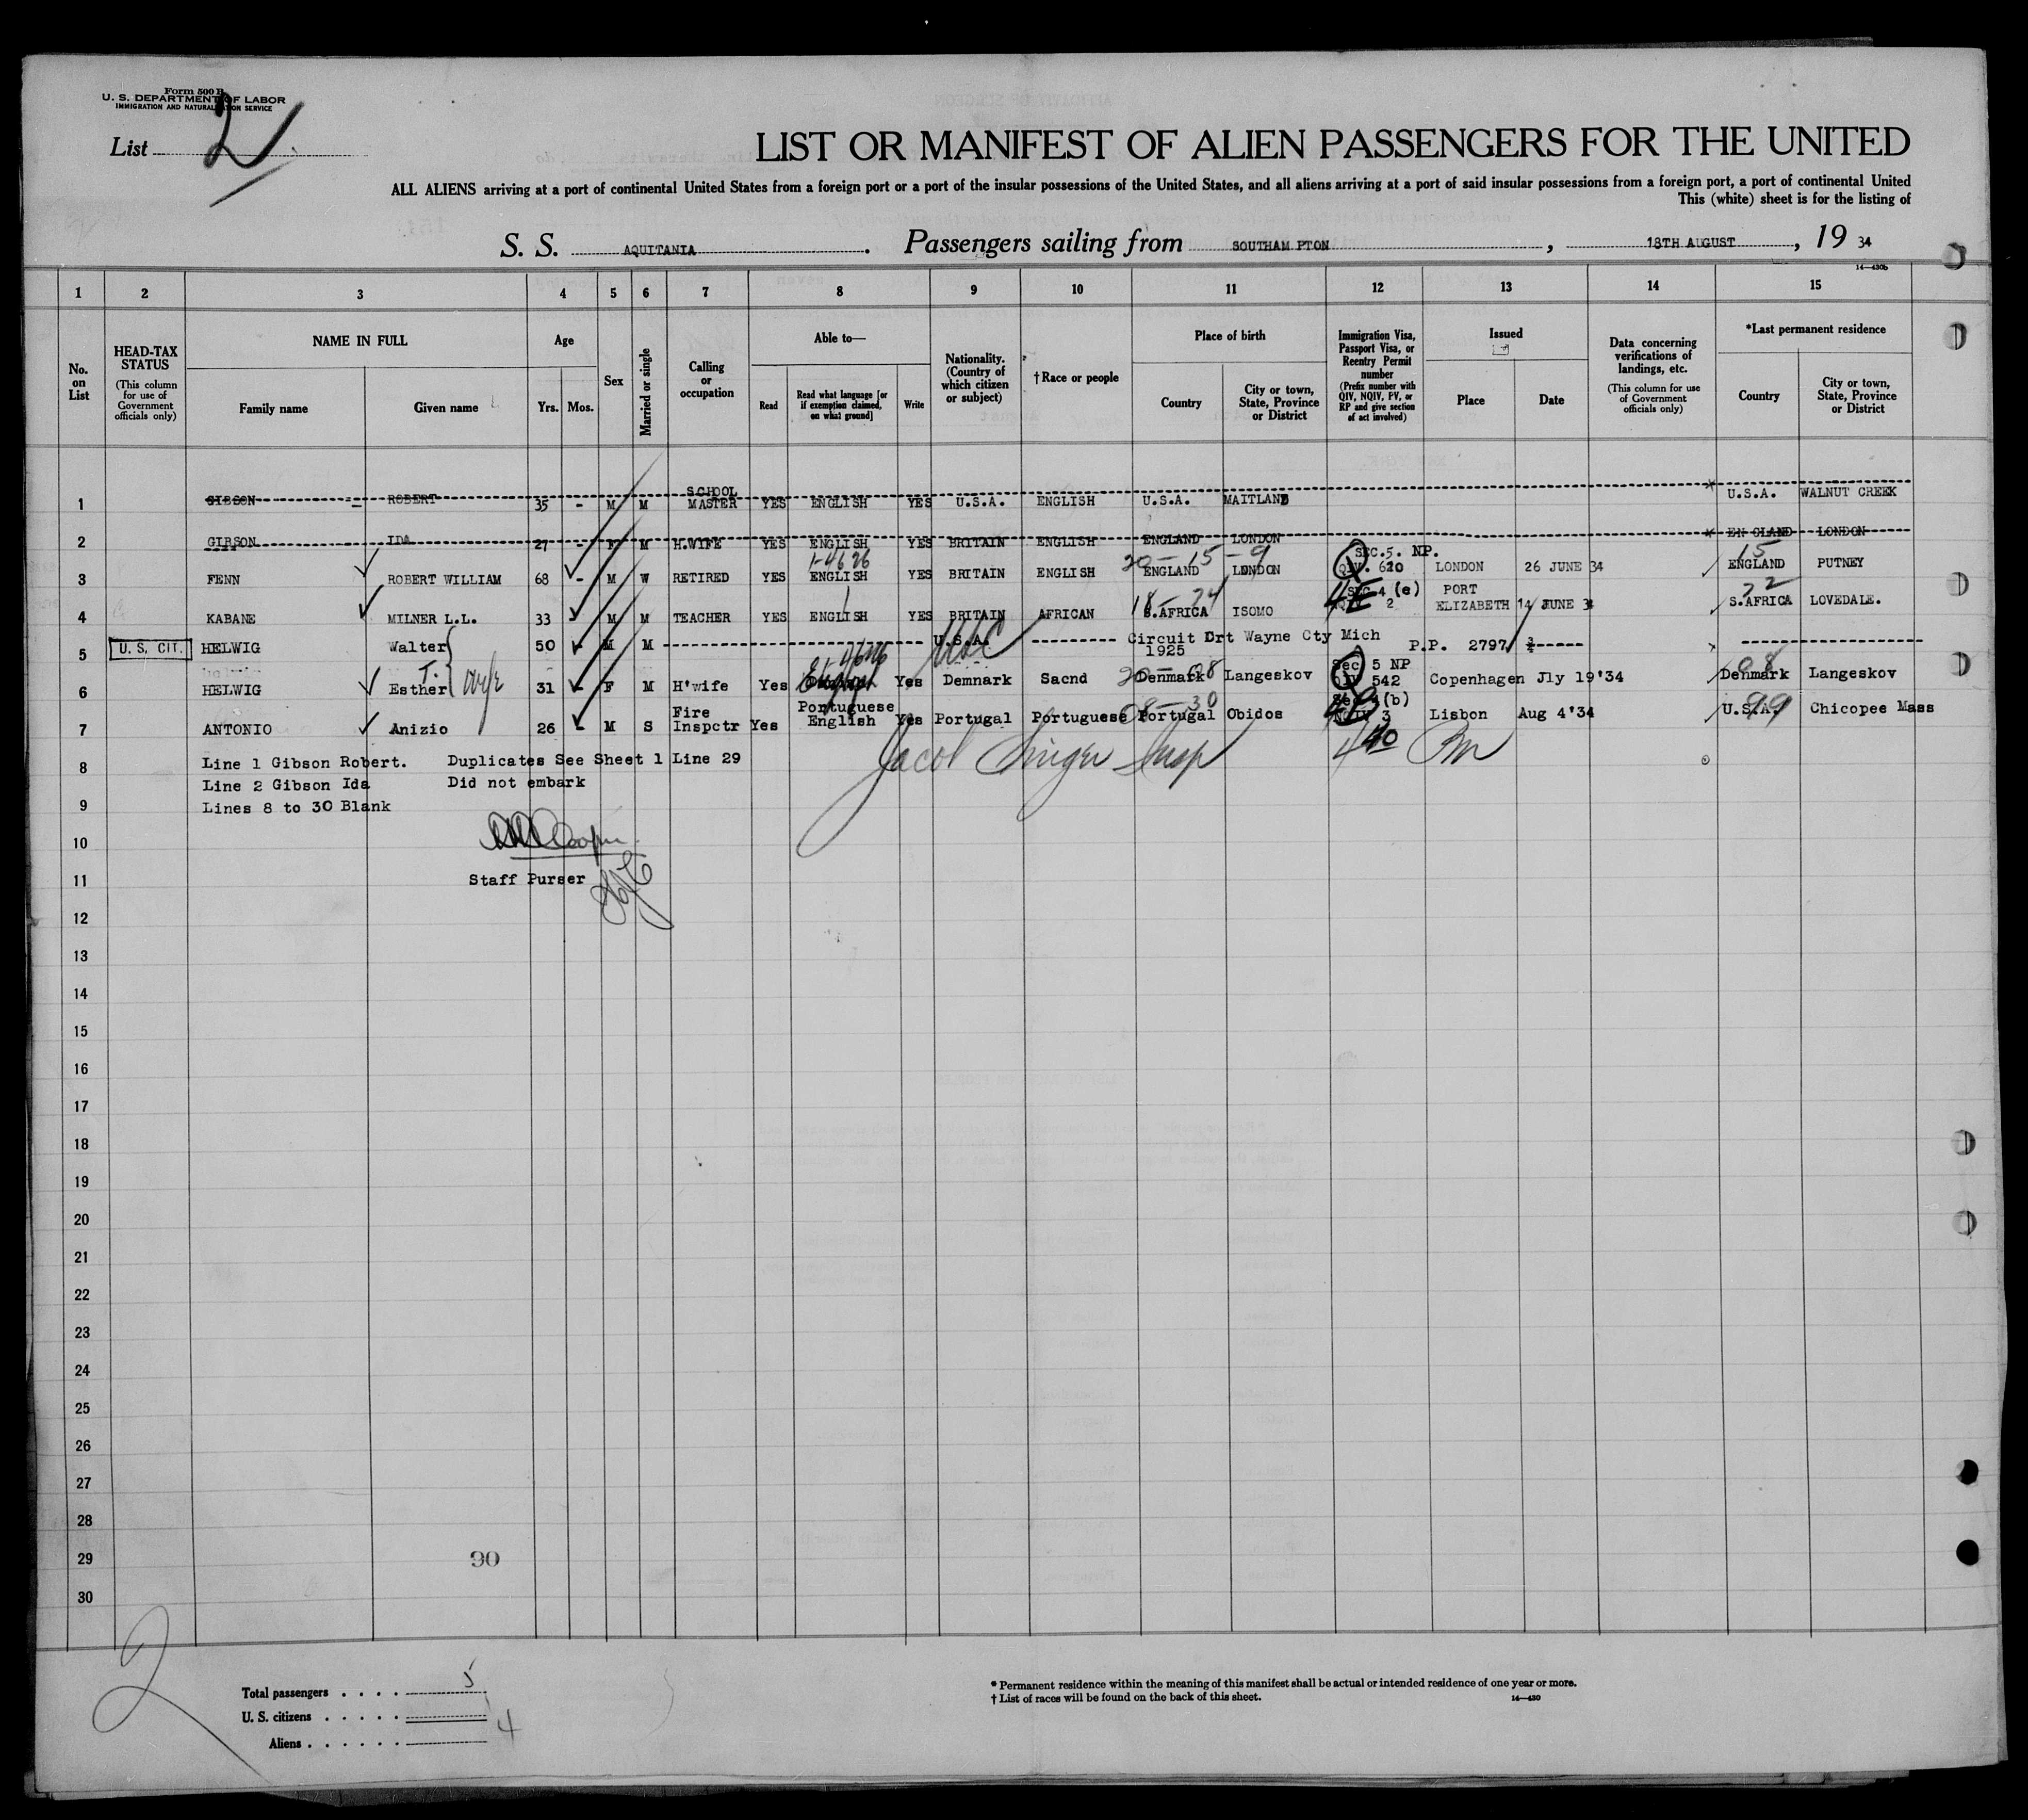 Form 500 B
U. S. DEPARTMENT OF LABOR
IMMIGRATION AND NATURALIZATION SERVICE
List 2
LIST OR MANIFEST OF ALIEN PASSENGERS FOR THE UNITED
ALL ALIENS arriving at a port of continental United States from a foreign port or a port of the insular possessions of the United States, and all aliens arriving at a port of said insular possessions from a foreign port, a port of continental United
This (white) sheet is for the listing of
S. S. AQUITANIA. Passengers sailing from SOUTHAM PTON, 18TH AUGUST, 19 34
14—430b
1 2 3 4 5 6 7 8 9 10 11 12 13 14 15
No. on List
HEAD-TAX STATUS (This column for use of Government officials only)
NAME IN FULL
Family name Given name
Age
Yrs. Mos.
Sex
Married or single
Calling or occupation
Able to—
Read Read what language [or if exemption claimed, on what ground] Write
Nationality. (Country of which citizen or subject)
† Race or people
Place of birth
Country City or town, State, Province or District
Immigration Visa, Passport Visa, or Reentry Permit number (Prefix number with QIV, NQIV, PV, or RP and give section of act involved)
Issued
Place Date
Data concerning verifications of landings, etc. (This column for use of Government officials only)
*Last permanent residence
Country City or town, State, Province or District
1 GIBSON ROBERT 35 - M M SCHOOL MASTER YES ENGLISH YES U.S.A. ENGLISH U.S.A. MAITLAND U.S.A. WALNUT CREEK
2 GIBSON IDA 27 - F M H.WIFE YES ENGLISH YES BRITAIN ENGLISH ENGLAND LONDON EN GLAND LONDON
1-4626 20-15-9 15
3 FENN ROBERT WILLIAM 68 - M W RETIRED YES ENGLISH YES BRITAIN ENGLISH ENGLAND LONDON SEC.5. NP. QIV. 620 LONDON 26 JUNE 34 ENGLAND PUTNEY
4 KABANE MILNER L.L. 33 - M M TEACHER YES ENGLISH YES BRITAIN AFRICAN S.AFRICA ISOMO SEC 4 (e) 2 PORT ELIZABETH 14 JUNE 34 S.AFRICA LOVEDALE.
5 U. S. CIT. HELWIG Walter 50 - M M U.S.A. USC Circuit Crt Wayne Cty Mich 1925 P.P. 2797
6 HELWIG Esther T. wife 31 - F M H'wife Yes Yes Demnark Sacnd Denmark Langeskov Sec 5 NP QIV 542 Copenhagen Jly 19'34 Denmark Langeskov
08
7 ANTONIO Anizio 26 - M S Fire Inspctr Yes Portuguese English Yes Portugal Portuguese Portugal Obidos (b) NQIV 3 Lisbon Aug 4'34 U.S.A. 99 Chicopee Mass
8 Line 1 Gibson Robert. Duplicates See Sheet 1 Line 29
Jacob Singer Insp
Line 2 Gibson Ida Did not embark
9 Lines 8 to 30 Blank
10
11 Staff Purser
12
13
14
15
16
17
18
19
20
21
22
23
24
25
26
27
28
29 90
30
2
Total passengers . . . . 5
U. S. citizens . . . . .
Aliens . . . . . . 4
* Permanent residence within the meaning of this manifest shall be actual or intended residence of one year or more.
† List of races will be found on the back of this sheet. 14—430